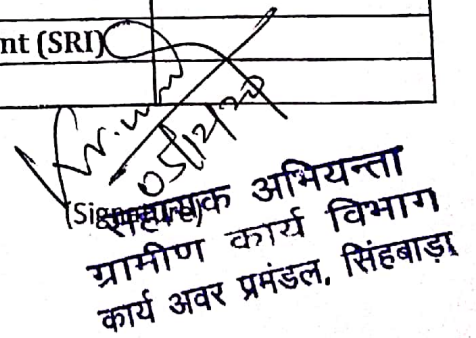 nt (SRI)
05/12/20
(Signature)
सहायक अभियन्ता
ग्रामीण कार्य विभाग
कार्य अवर प्रमंडल, सिंहबाड़ा